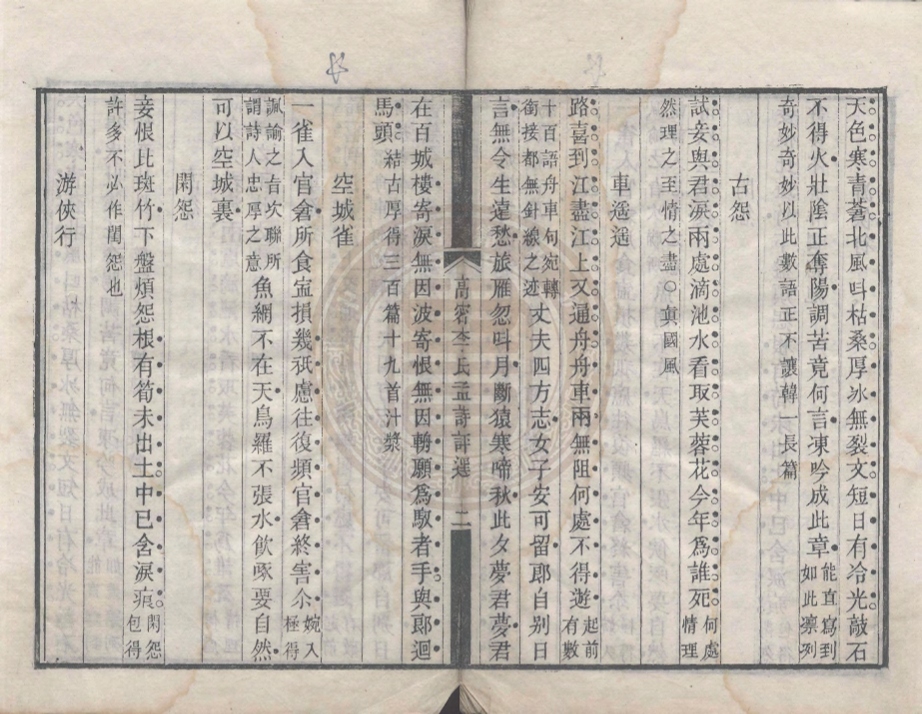 天色寒青蒼北風叫枯桑厚冰無裂文短日有冷光敲石
不得火壯陰正奪陽調苦竟何言凍吟成此章能直寫到如此凛冽
奇妙奇妙以此數語正不讓韓一長篇
古怨
試妾與君淚兩處滴池水看取芙蓉花今年爲誰死何處情理
然理之至情之盡○眞國風
車遥遥
路喜到江盡江上又通舟舟車兩無阻何處不得遊起前有數
十百語舟車句宛轉銜接都無針線之迹丈夫四方志女子安可留郎自别日
言無令生遠愁旅雁忽叫月斷猿寒啼秋此夕夢君夢君
高密李氏孟詩評選 二
在百城樓寄淚無因波寄恨無因輈願爲馭者手與郎迴
馬頭結古厚得三百篇十九首汁漿
空城雀
一雀入官倉所食寍損幾祇慮往復頻官倉終害尒婉入極得
諷諭之旨次聯所謂詩人忠厚之意魚網不在天鳥羅不張水飲啄要自然
可以空城裏
閑怨
妾恨比斑竹下盤煩怨根有筍未出土中已含淚痕閑怨包得
許多不必作閨怨也
游俠行